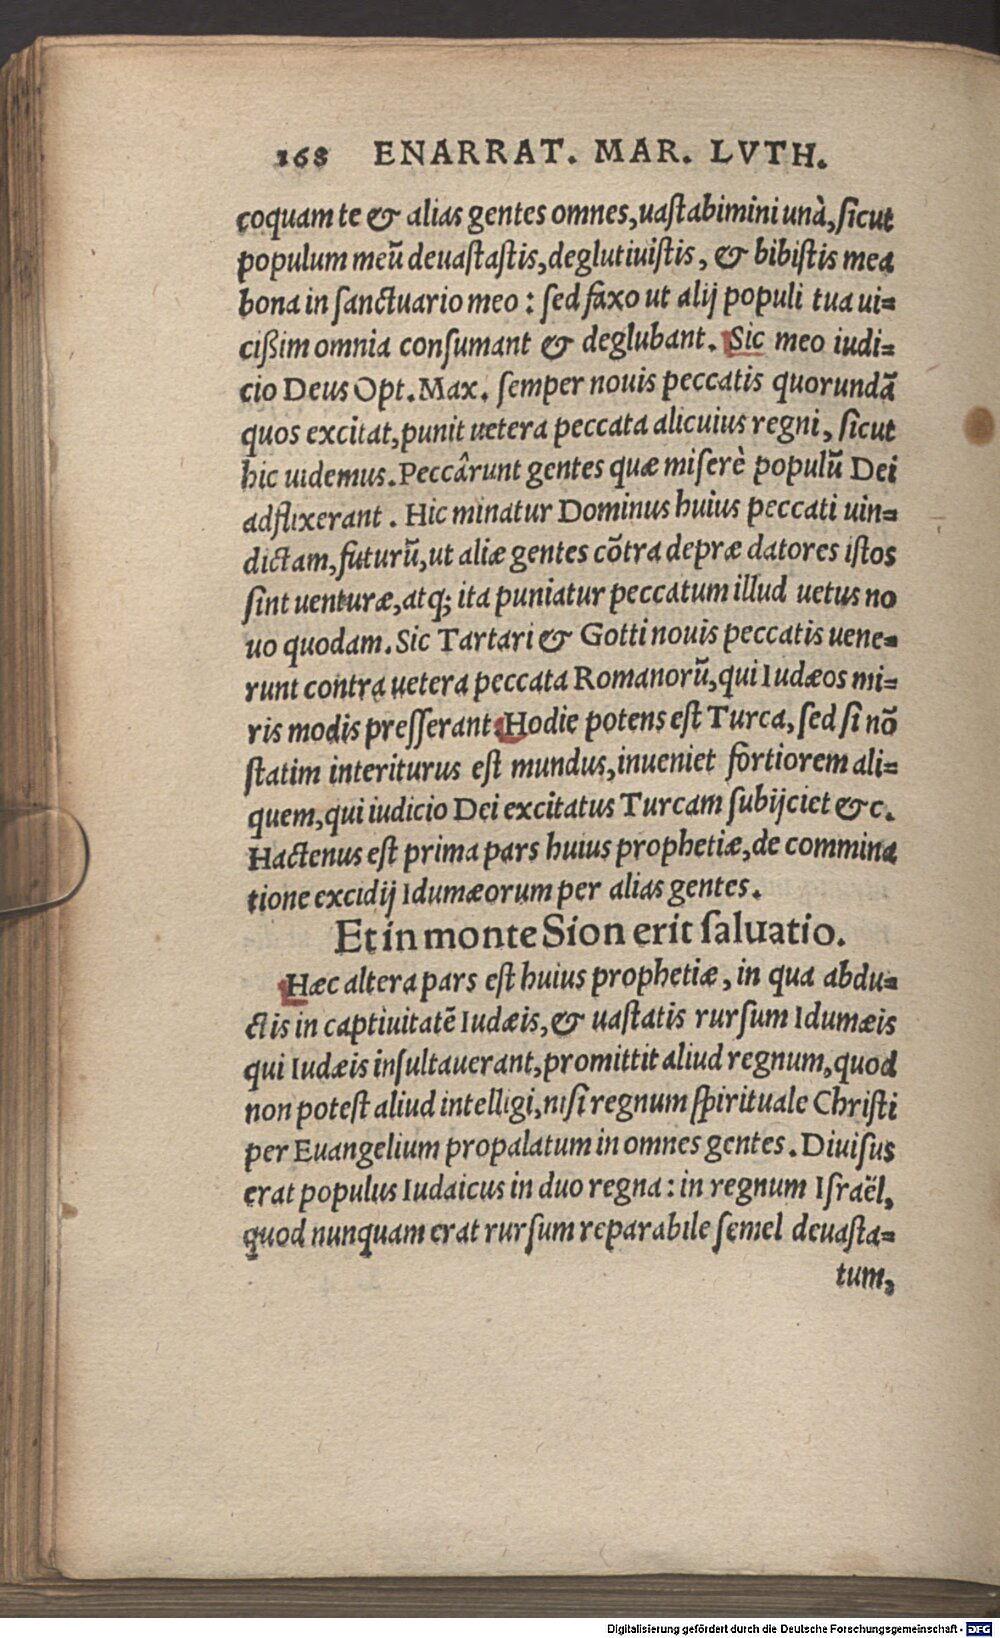 168 ENARRAT. MAR. LVTH.
coquam te & alias gentes omnes, uaſtabimini unà, ſicut
populum meũ deuaſtaſtis, deglutiuiſtis, & bibiſtis mea
bona in ſanctuario meo: ſed faxo ut alij populi tua ui=
ciſßim omnia conſumant & deglubant. Sic meo iudi=
cio Deus Opt. Max. ſemper nouis peccatis quorundã
quos excitat, punit uetera peccata alicuius regni, ſicut
hic uidemus. Peccârunt gentes quæ miſerè populũ Dei
adflixerant. Hic minatur Dominus huius peccati uin=
dictam, futurũ, ut aliæ gentes cõtra deprædatores iſtos
ſint uenturæ, atq; ita puniatur peccatum illud uetus no
uo quodam. Sic Tartari & Gotti nouis peccatis uene=
runt contra uetera peccata Romanorũ, qui Iudæos mi=
ris modis preſſerant. Hodie potens eſt Turca, ſed ſi nõ
ſtatim interiturus eſt mundus, inueniet fortiorem ali=
quem, qui iudicio Dei excitatus Turcam ſubijciet &c.
Hactenus eſt prima pars huius prophetiæ, de commina
tione excidij Idumæorum per alias gentes.
Et in monte Sion erit ſaluatio.
Hæc altera pars eſt huius prophetiæ, in qua abdu=
ctis in captiuitatẽ Iudæis, & uaſtatis rurſum Idumæis
qui Iudæis inſultauerant, promittit aliud regnum, quod
non poteſt aliud intelligi, niſi regnum ſpirituale Chriſti
per Euangelium propalatum in omnes gentes. Diuiſus
erat populus Iudaicus in duo regna: in regnum Iſraël,
quod nunquam erat rurſum reparabile ſemel deuaſta=
tum,
Digitalisierung gefördert durch die Deutsche Forschungsgemeinschaft - DFG